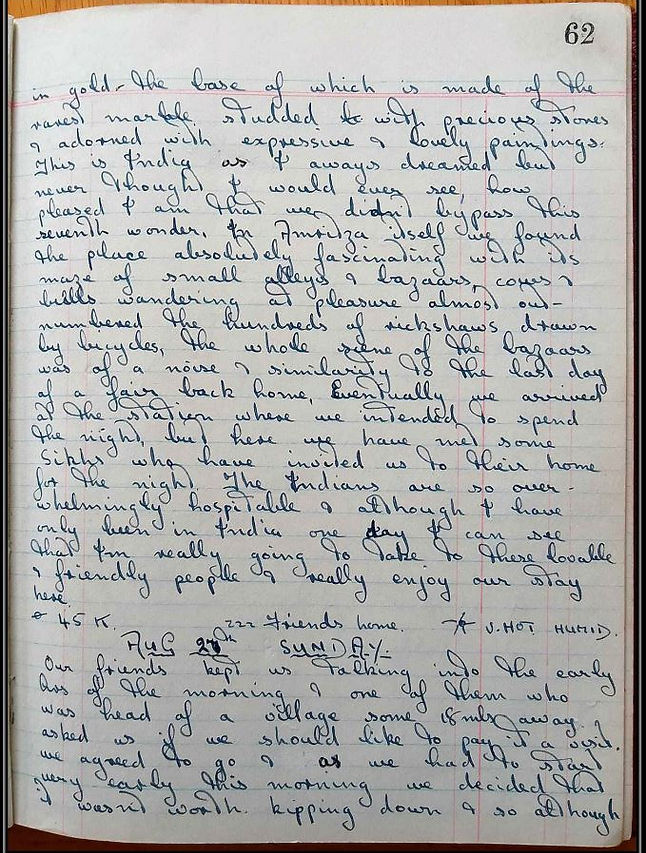 62
in gold - the base of which is made of the
rarest marble studded with precious stones
& adorned with expressive & lovely paintings.
This is India as I aways dreamed but
never thought I would ever see, how
pleased I am that we didnt bypass this
seventh wonder. In Amritza itself we found
the place absolutely fascinating with its
maze of small alleys & bazaars, cows &
bulls wandering at pleasure almost out-
numbered the hundreds of rickshaws drawn
by bicycles, the whole scene of the bazaars
was of a noise & similarity to the last day
of a fair back home. Eventually we arrived
at the station where we intended to spend
the night, but here we have met some
Sikhs who have invited us to their home
for the night. The Indians are so over-
whelmingly hospitable & although I have
only been in India one day I can see
that I'm really going to take to these lovable
& friendly people & really enjoy our stay
here.
45 K. zzz Friends home. V. HOT HUMID.
AUG 27th SUNDAY.
Our friends kept us talking into the early
hrs of the morning & one of them who
was head of a village some 18 mls away,
asked us if we should like to pay it a visit.
we agreed to go & as we had to start
very early this morning we decided that
it wasnt worth kipping down & so although